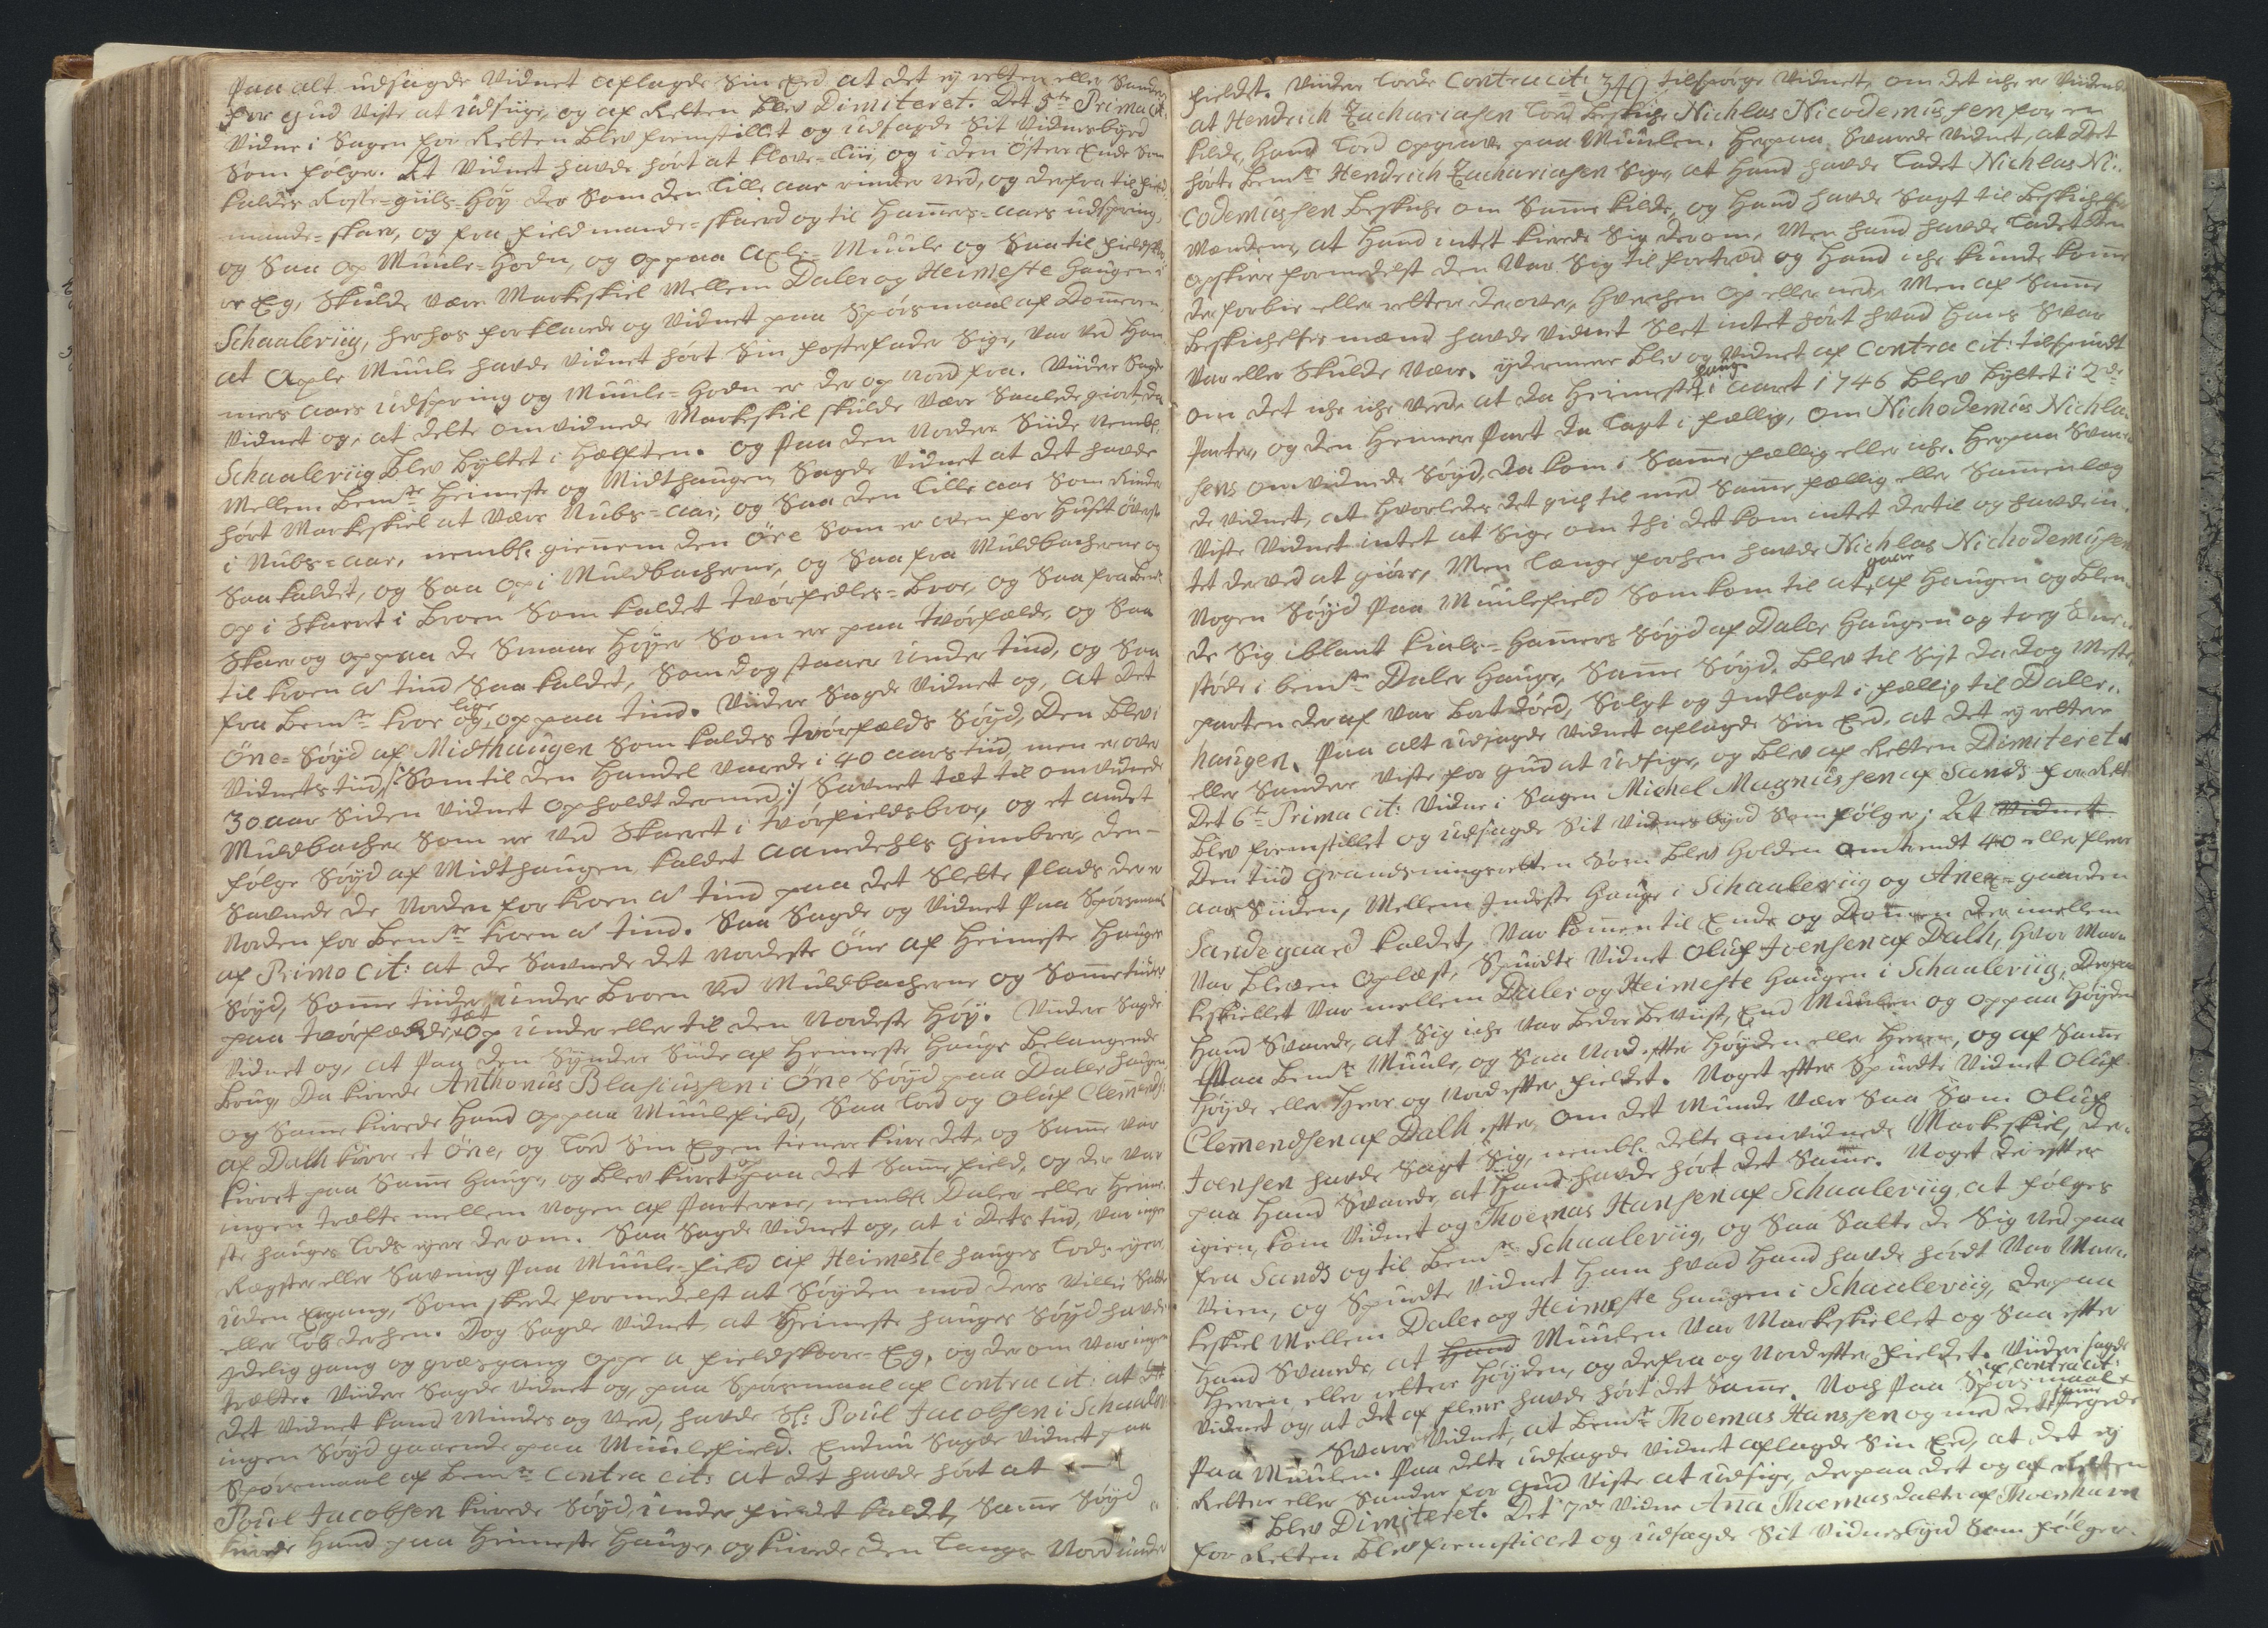 Paa alt udsagde Vidnet aflagde Sin Eed at det ej rettere eller Sandere
for Gud Viste at udsiige, og af Retten blev Dimiteret. Det 5te Prima Cit:
Vidne i Sagen for Retten blev fremstillet og udsagde Sit Vidnesbyrd
Som følger. At Vidnet havde hørt at og i den Østere Ende Som
kaldes Høy der Som den lille aae rinder ned, og derfra til
mande-skar, og fra field mande-skard og til Hamers-aaes udspring,
og Saa op Muule-Hodn, og op paa Axle-Muule og Saa til
Eg, Skulde være Markeskiel Mellem Daler og Heimeste Haugen i
Schaaleviig, herhos forklarede og Vidnet paa Spørsmaal af Dommeren
at Axle Muule havde Vidnet hørt Sin fosterfader Sige, var ved Ham
mers aaes udspring og Muule-Hodn er der op Nord fra. Viidere Sagde
Vidnet og, at dette omvidnede Markeskiel skulde være Saalede giort, da
Schaaleviig blev byttet i Hælften. Og paa den Nordre Siide Nembl.
Mellem bemte Heimeste og Midthaugen, Sagde Vidnet at det havde
hørt Markeskiel at være Nubs-aae, og Saa den lille aae Som Rinder
i Nubs-aae, nembl. giennem den Øre Som er oven for Huset øverst
Saa kaldet, og Saa op i Muldbacherne, og Saa fra Muldbacherne og
op i Skaret i Broen Som kaldet Tvørfelles-Broe, og Saa fra bemte
Skar og op paa de Smaae Høyer Som er paa Tvørfælde, og Saa
til Kroen a' Tind Saa kaldet, Som dog staaer under Tind, og Saa
fra bemte Kroe og lige op paa Tind. Viidere Sagde Vidnet og, at det
Øne-Søyd af Midthaugen Som kaldes Tvørfælds Søyd, Den blev i
Vidnets tiid, /: Som til den Handel varede i 40 aars tiid, men er over
30 aar Siden Vidnet opholdt dermed :/ Savnet tæt til omvidnede
Muldbacher Som er ved Skaret i Tvørfieldsbroe, og et andet
følge Søyd af Midthaugen, kaldet Aanedehls Gimbrer, den-
Savnede de Norden for Kroen a' Tind paa det Slette Plads der er
Norden for bemte Kroen a' Tind. Saa Sagde og Vidnet paa Spørsmaal
af Primo Cit: at de Savnede det Nordeste Øne af Heimeste Hauges
Søyd, Somme tiider under Broen ved Muldbacherne og Sommetiider
paa Tvørfælde, tæt op under eller til den Nordeste Høy. Viidere Sagde
Vidnet og, at paa den Syndere Siide af Heimeste Hauge belangende
brug, Da kiørede Anthonius Blasiussen i Øne Søyd paa Daler Haugen
og Samme kiørede Hand op paa Muulefield, Saa lod og Oluf Clemends:
af Dalh kiøre et Øne, og lod Sin Egen tienere kiøre det, og Samme var
kiøret paa Samme Hauge, og blev kiøret op paa det Samme field, og der var
ingen trætte mellem Nogen af Parterne, nembl. Daler eller Heime-
ste Hauges Lods eyere derom. Saa Sagde Vidnet og, at i Dets tiid, var ingen
Røgster eller Savning paa Muule-field af Heimeste Hauges Lods eyere
uden Eegang, Som skede formedelst at Søyden mod deres Villie Satte
eller løb derhen. Dog Sagde Vidnet, at Heimeste Hauges Søyd havde
Idelig gang og græsgang oppe a fieldskore-Eg, og derom var ingen
trætte. Viidere Sagde Vidnet og, paa Spørsmaal af Contra Cit: at
det Vidnet kand Mindes og Veed, havde Sl: Poul Jacobsen i Schaalev
ingen Søyd gaaende paa Muulefield. Endnu Sagde Vidnet paa
Spørsmaal af bemte Contra Cit: at det havde hørt at
Poul Jacobsen kiørede Søyd, under fieldet kaldet, Samme Søyd
kiørede Hand paa Heimeste Hauge, og kiørede den lange Nord under
fieldet. Viidere lovde Contra Cit: 349 tilspørge Vidnet, om det iche er Viidende
at Hendrich Zachariasen lod beskiche Nichlas Nicodemussen for en
kilde, Hand lod opgrave paa Muulen. Herpaa Svarede Vidnet, at Det
hørte bemte Hendrich Zachariasen Sige, at Hand havde ladet Nichlas Ni-
codemussen beskiche om Samme kilde, og Hand havde Sagt til beskichelses
Mændene, at Hand intet kierede Sig derom. Men Hand havde ladet den
opskiere formedelst den Var Sig til fortræd og Hand iche kunde komme
der forbie eller rettere derover, Hverchen op eller ned. Men af Samme
beskichelses mænd havde Vidnet Slet intet hørt hvad Hans Svar
var eller Skulde være. Ydermere blev og Vidnet af Contra Cit: tilspurdt
om det iche iche veed, at da Heimeste Hauge i Aaret 1746 blev byttet i 2de
Parter, og den Hennere Part da lagt i fællig, om Nichodemus Nichla-
sens omvidnede Søyd, da kom i Samme fællig eller iche. Herpaa Svare-
de Vidnet, at Hvorledes det gich til med Samme fællig eller Sammenlæg
Viste Vidnet intet at Sige om thi det kom intet dertil og havde in-
tet derved at giøre, Men længe forhen havde Nichlas Nichodemussen
Nogen Søyd paa Muulefield Som kom til at gaae af Haugen og blen-
de Sig iblant Kials-Hamers Søyd af Daler Haugen og tog
støde i bemte Daler Hauge, Samme Søyd blev til Sist da dog Meste
parten deraf var bort død, Solgt og Indlagt i fællig til Daler-
haugen. Paa alt udsagde Vidnet aflagde Sin Eed, at det ej rettere
eller Sandere Viste for Gud at udsige, og blev af Retten Dimiteret.
Det 6te Prima Cit: Vidne i Sagen Michel Magnussen af Sands for Ret
blev fremstillet og udsagde Sit Vidnesbyrd Som følger; At Vidnet
Den tiid Grandsningsretten Som blev Holden omtrendt 40 eller flere
aar Siiden, Mellem Inderste Hauge i Schaaleviig og Anex-gaarden
Sandegaard kaldet, Var kommen til Ende og Dommen der imellem
Var bleven oplæst, Spurdte Vidnet Oluf Joensen af Dalh, hvor Mar-
keskiellet Var mellem Daler og Heimeste Haugen i Schaaleviig; Derpaa
Hand Svarede, at Sig iche Var bedre beviist, End Muulen og op paa Høyden
paa bemte Muule, og Saa Nord efter Høyden eller Herren, og af Samme
Høyde eller Herre og Nord efter fieldet. Noget efter Spurdte Vidnet Oluf
Clemendsen af Dalh efter, om det Munde være Saa Som Oluf
Joensen havde Sagt Sig, nembl. dette omvidnede Markeskiel, der-
paa Hand Svarede, at Hand havde hørt det Samme. Noget derefter
igien, kom Vidnet og Thoemas Hansen af Schaaleviig, at følges
fra Sands og til bemte Schaaleviig, og Saa Satte de Sig Ned paa
Veien, og Spurdte Vidnet Ham hvad Hand havde hørdt Var Mar-
keskiel Mellem Daler og Heimeste Haugen i Schaaleviig, derpaa
Hand Svarede, at Hand Muulen Var Markeskiellet og Saa efter
Herren eller rettere Høyden, og derfra og Nord efter fieldet. Viidere Sagde
Vidnet og, at det af flere havde hørt det Samme. Noch paa Spørsmaal af Contra Cit:
Svarer Vidnet, at bemte Thoemas Hanssen og med det Samme pegede
Paa Muulen. Paa dette udsagde Vidnet aflagde Sin Eed, at det ej
Rettere eller Sandere for Gud Viste at udsige, derpaa det og af Retten
blev Dimiteret. Det 7de Vidne Anna Thoemasdatter af Thorshavn
for Retten blev fremstillet og udsagde Sit Vidnesbyrd Som følger.